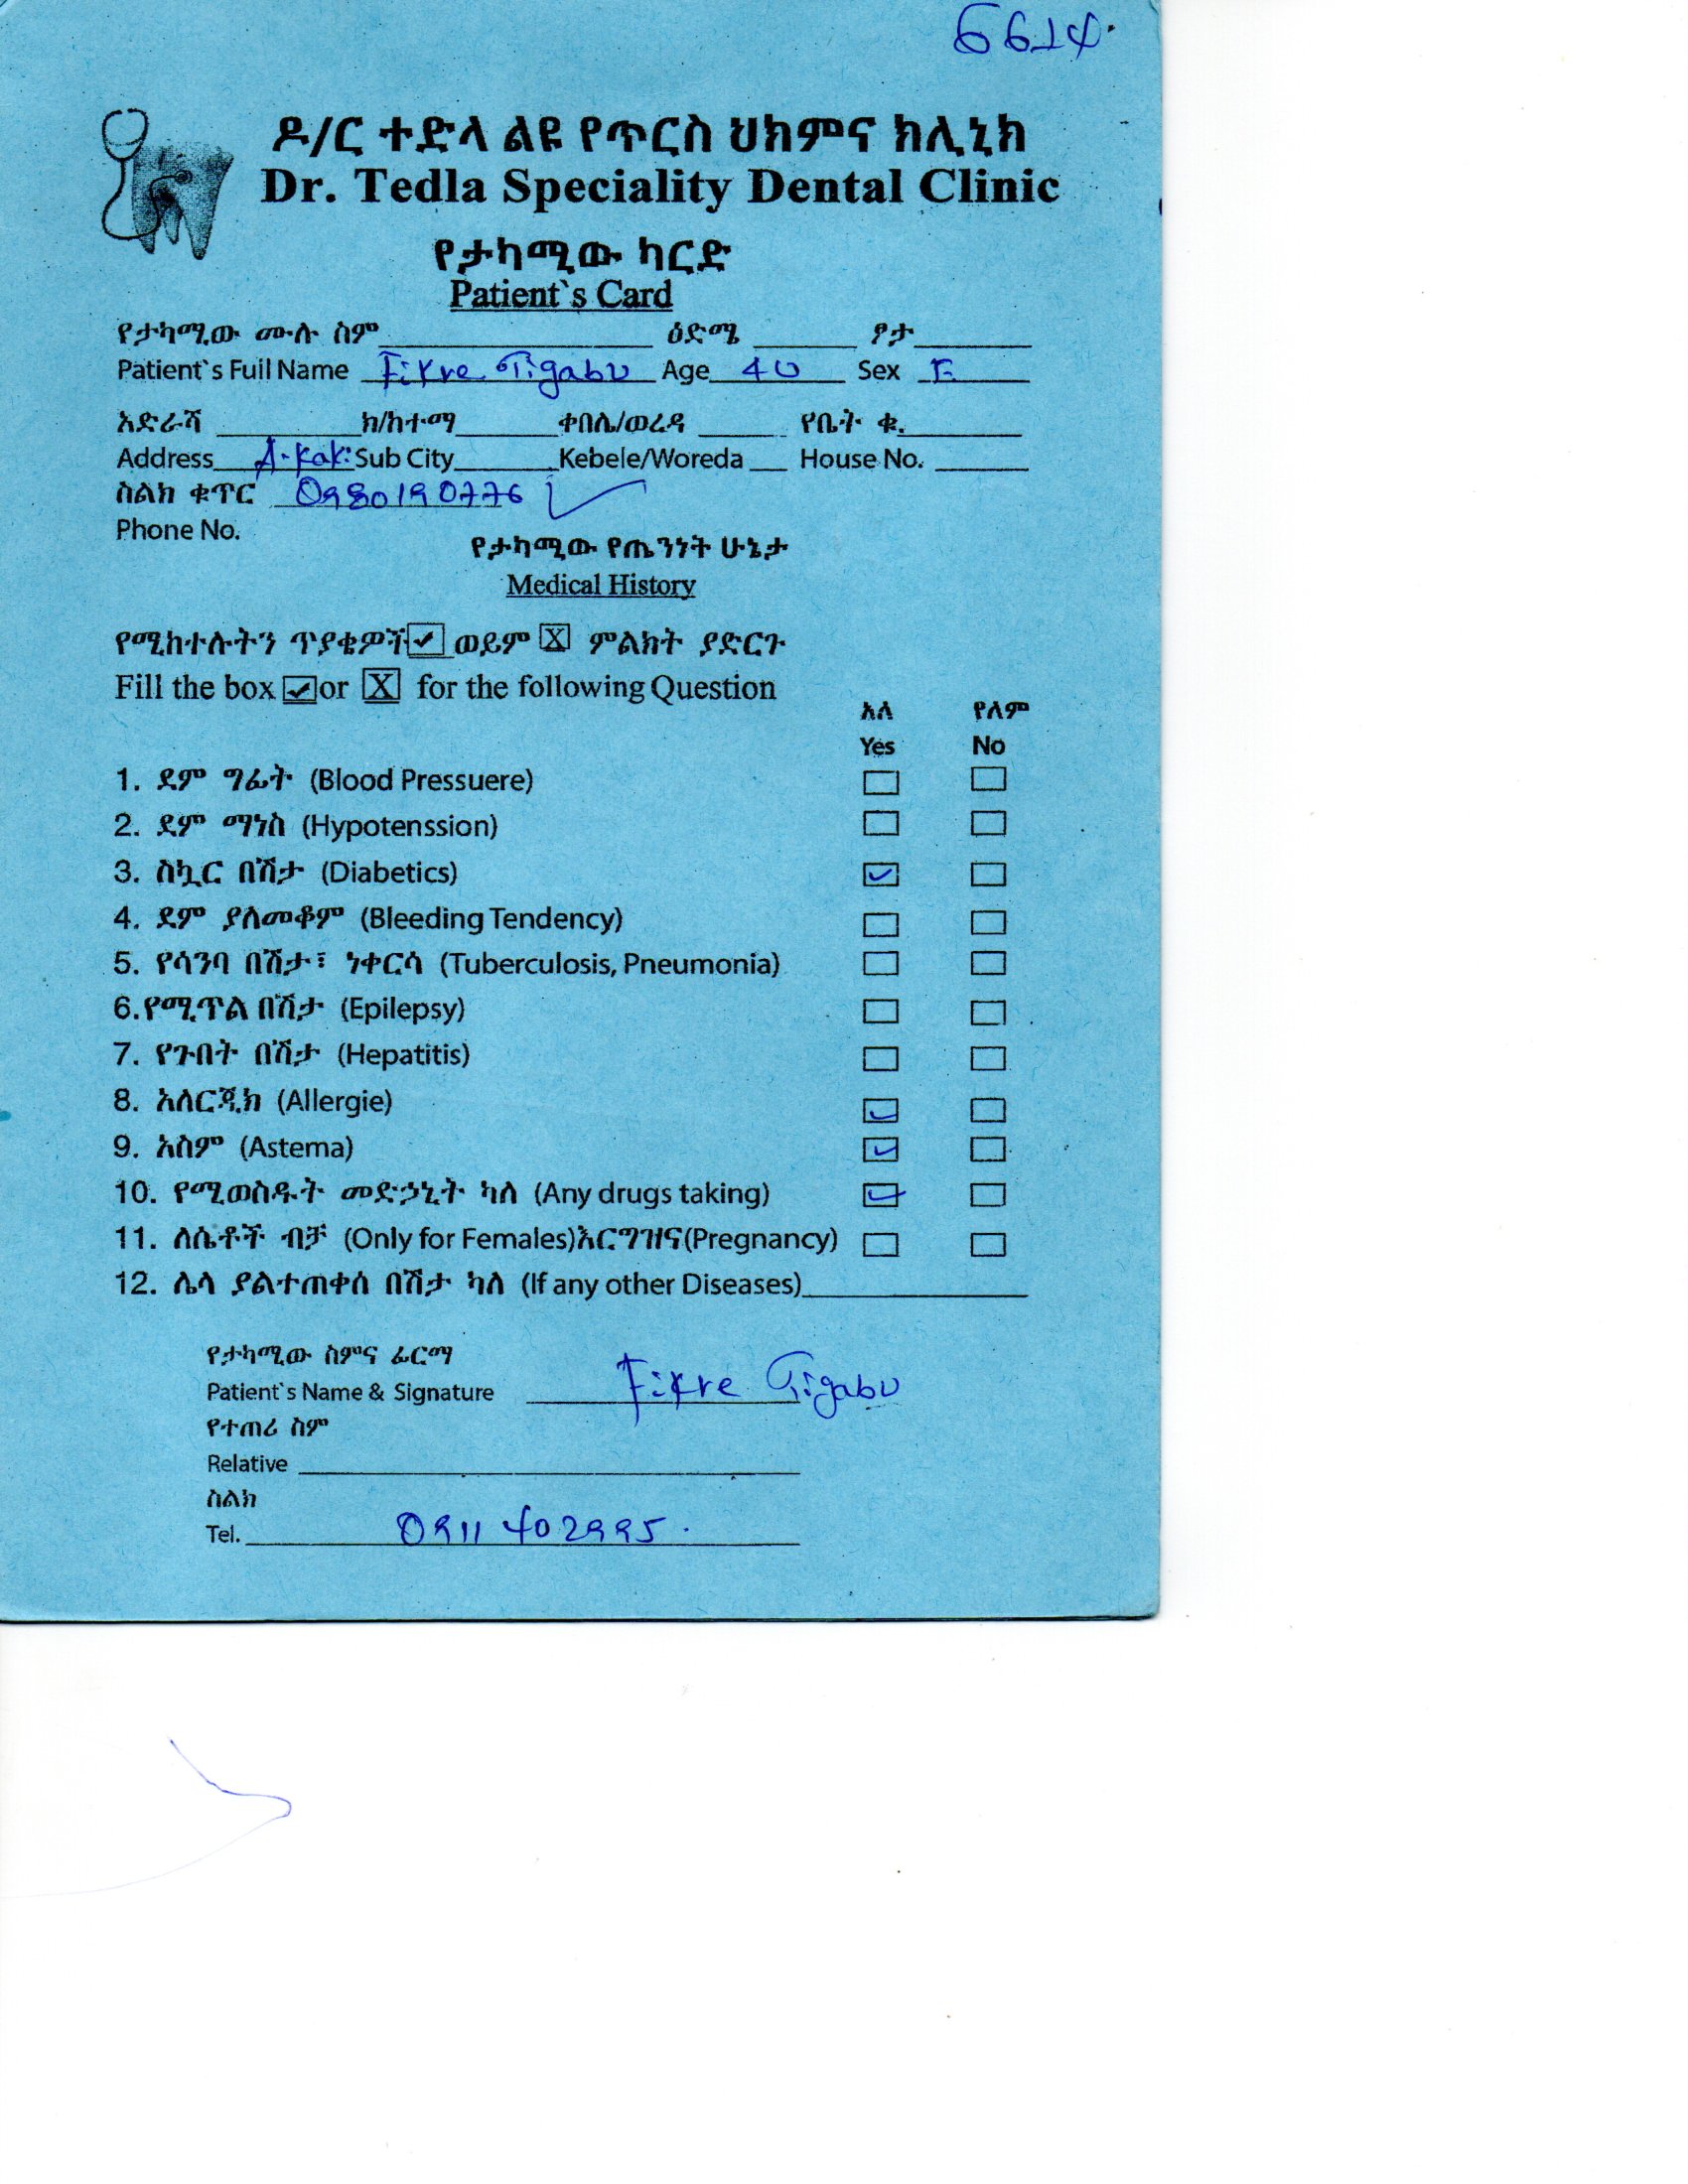 6614.
ዶ/ር ተድላ ልዩ የጥርስ ህክምና ክሊኒክ
Dr. Tedla Speciality Dental Clinic
የታካሚው ካርድ
Patient`s Card
የታካሚው ሙሉ ስም ዕድሜ ፆታ
Patient`s Full Name Fikre Tigabu Age 40 Sex F
አድራሻ ክ/ከተማ ቀበሌ/ወረዳ የቤት ቁ.
Address A-kaki Sub City Kebele/Woreda House No.
ስልክ ቁጥር 0980190776
Phone No.
የታካሚው የጤንነት ሁኔታ
Medical History
የሚከተሉትን ጥያቄዎች ✓ ወይም X ምልክት ያድርጉ
Fill the box ✓ or X for the following Question
አለ የለም
Yes No
1. ደም ግፊት (Blood Pressuere)
2. ደም ማነስ (Hypotenssion)
3. ስኳር በሽታ (Diabetics) ✓
4. ደም ያለመቆም (Bleeding Tendency)
5. የሳንባ በሽታ፣ ነቀርሳ (Tuberculosis, Pneumonia)
6.የሚጥል በሽታ (Epilepsy)
7. የጉበት በሽታ (Hepatitis)
8. አለርጂክ (Allergie) ✓
9. አስም (Astema) ✓
10. የሚወስዱት መድኃኒት ካለ (Any drugs taking) ✓
11. ለሴቶች ብቻ (Only for Females)እርግዝና(Pregnancy)
12. ሌላ ያልተጠቀሰ በሽታ ካለ (If any other Diseases)
የታካሚው ስምና ፊርማ
Patient`s Name & Signature Fikre Tigabu
የተጠሪ ስም
Relative
ስልክ
Tel. 0911 402995.